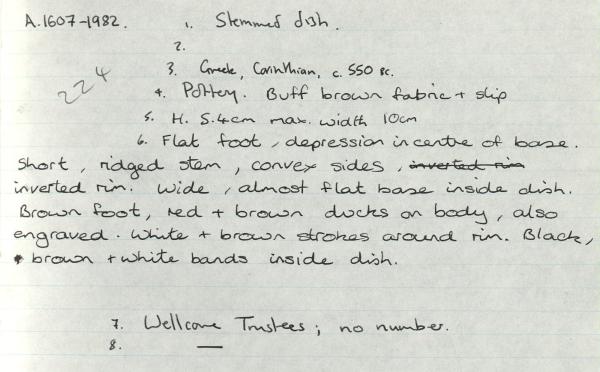 A.1607-1982. 1. Stemmed dish.
2.
224
3. Greek, Corinthian, c. 550 BC.
4. Pottery. Buff brown fabric + slip
5. H. 5.4cm max. width 10cm
6. Flat foot, depression in centre of base.
Short, ridged stem, convex sides, inverted rim
inverted rim. Wide, almost flat base inside dish.
Brown foot, red + brown ducks on body, also
engraved. White + brown strokes around rim. Black,
brown + white bands inside dish.
7. Wellcome Trustees; no number.
8. —